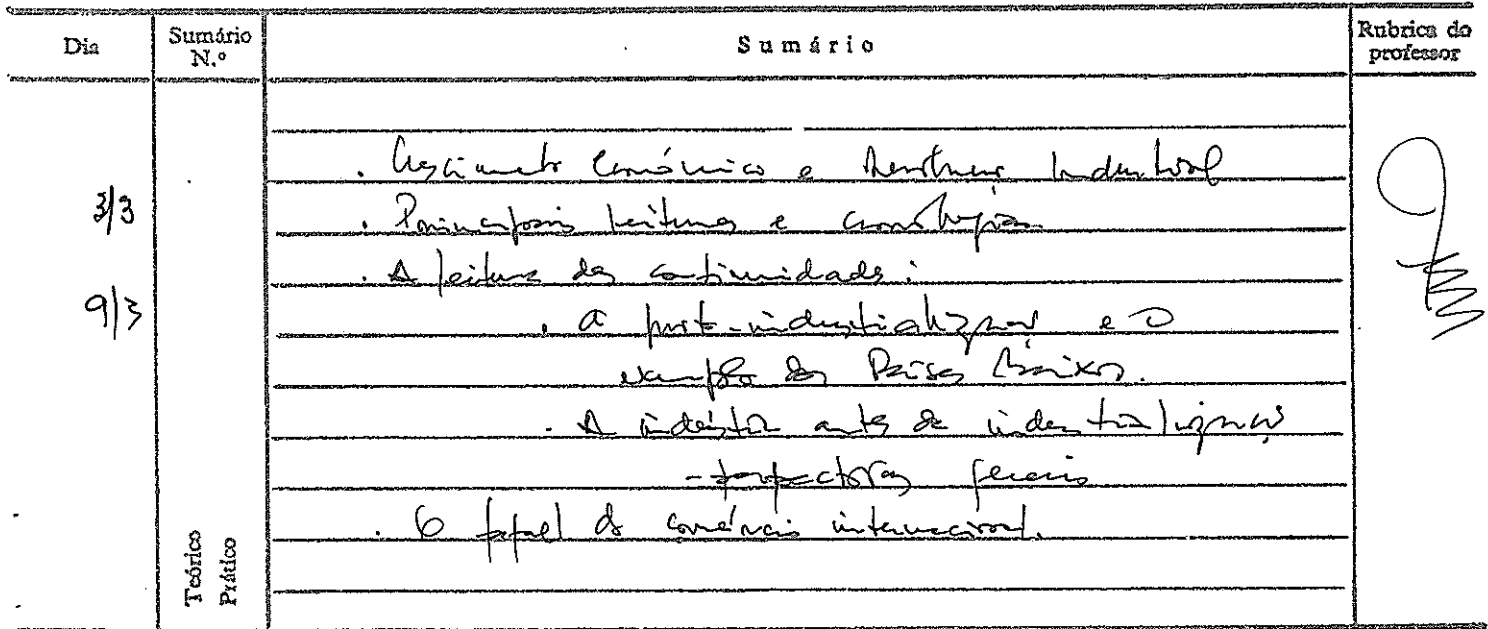 Dia
Sumário N.º
Sumário
Rubrica do professor
. Crescimento Económico e Revolução Industrial
3/3
. Principais leituras e cronologias
. A leitura das continuidades:
9/3
. a proto-industrialização e o
exemplo dos Países Baixos.
. A indústria antes da industrialização
- perspectivas gerais
. O papel do comércio internacional.
Teórico
Prático